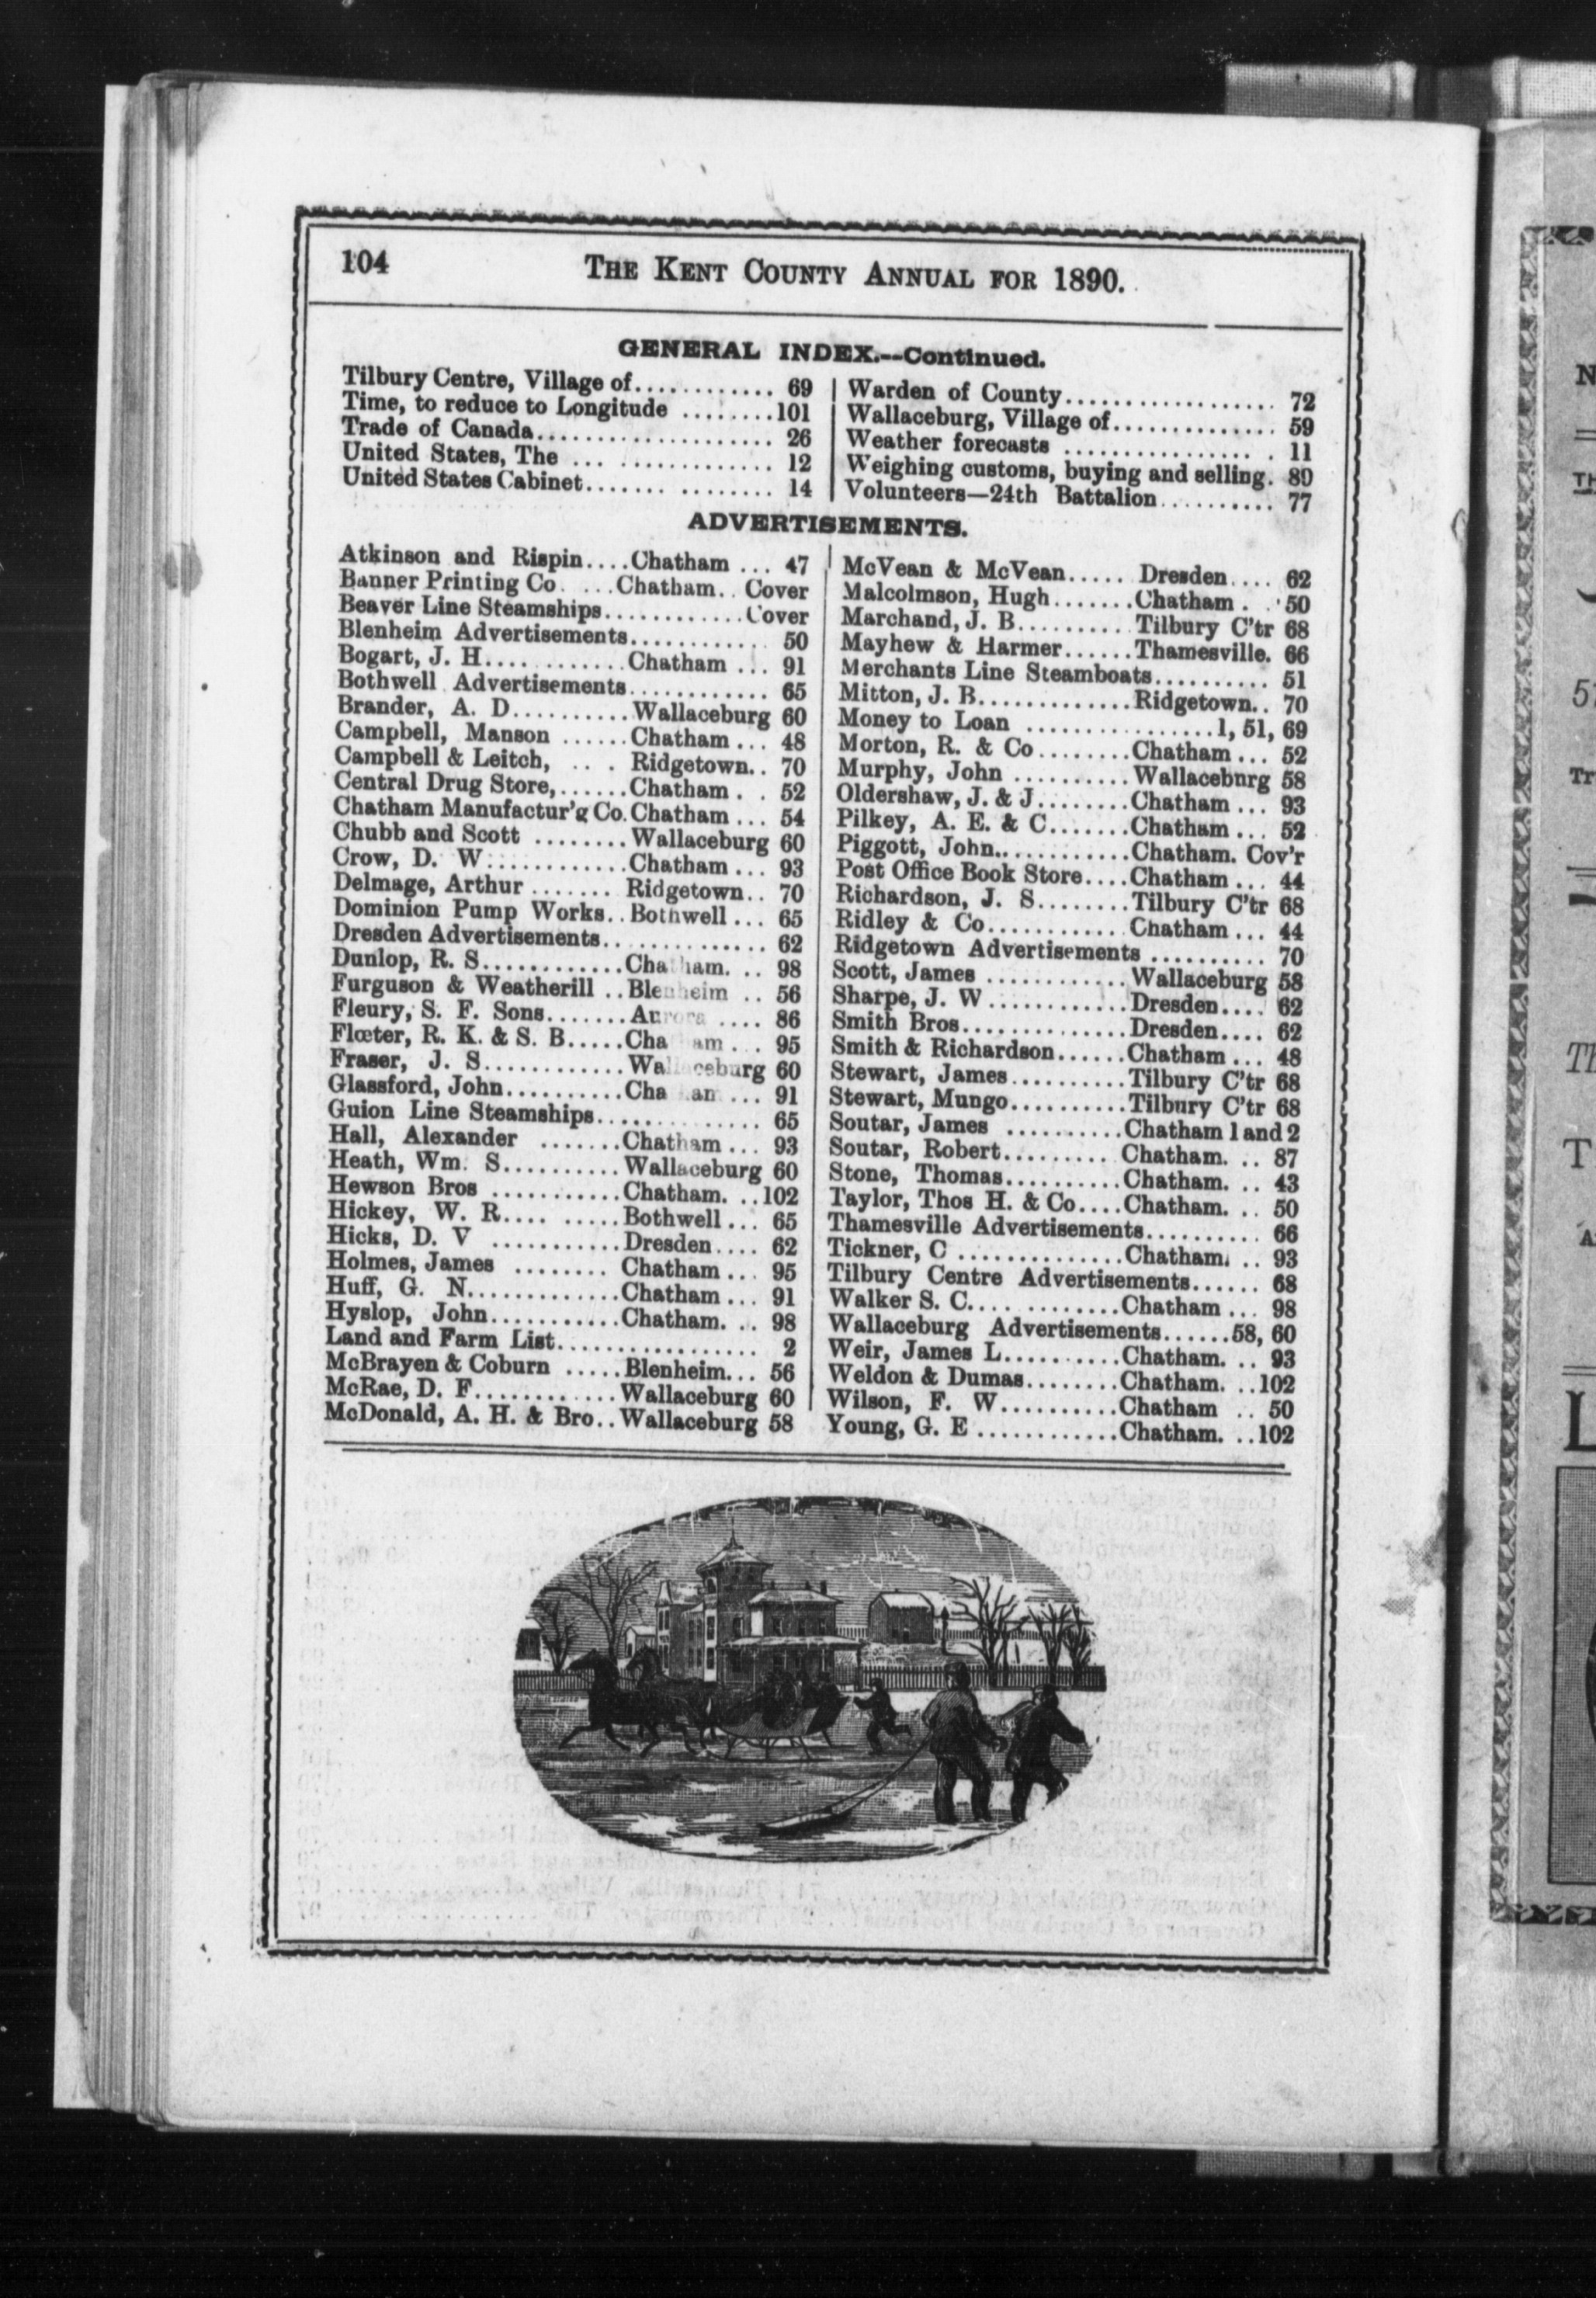 104
THE KENT COUNTY ANNUAL FOR 1890.
GENERAL INDEX.--Continued.
Tilbury Centre, Village of............ 69
Time, to reduce to Longitude ........101
Trade of Canada.................... 26
United States, The ... ............. 12
United States Cabinet....... ........ 14
Warden of County.................. 72
Wallaceburg, Village of.............. 59
Weather forecasts ................ . 11
Weighing customs, buying and selling. 80
Volunteers—24th Battalion.......... 77
ADVERTISEMENTS.
Atkinson and Rispin....Chatham ... 47
Banner Printing Co. ...Chatham.. Cover
Beaver Line Steamships............Cover
Blenheim Advertisements............ 50
Bogart, J. H............Chatham ... 91
Bothwell Advertisements............ 65
Brander, A. D..........Wallaceburg 60
Campbell, Manson ......Chatham ... 48
Campbell & Leitch, ... . Ridgetown.. 70
Central Drug Store,......Chatham . . 52
Chatham Manufactur'g Co.Chatham ... 54
Chubb and Scott ........Wallaceburg 60
Crow, D. W............Chatham ... 93
Delmage, Arthur ....... Ridgetown.. 70
Dominion Pump Works..Bothwell ... 65
Dresden Advertisements.............. 62
Dunlop, R. S............Chatham. .. 98
Furguson & Weatherill ..Blenheim .. 56
Fleury, S. F. Sons.......Aurora .... 86
Flœter, R. K. & S. B.....Cha am ... 95
Fraser, J. S............Wallaceburg 60
Glassford, John..........Cha am ... 91
Guion Line Steamships.............. 65
Hall, Alexander .......Chatham ... 93
Heath, Wm. S..........Wallaceburg 60
Hewson Bros ...........Chatham. ..102
Hickey, W. R.... .....Bothwell ... 65
Hicks, D. V ...........Dresden.... 62
Holmes, James ........ Chatham ... 95
Huff, G. N.............Chatham ... 91
Hyslop, John...........Chatham. .. 98
Land and Farm List................. 2
McBrayen & Coburn .....Blenheim... 56
McRae, D. F............Wallaceburg 60
McDonald, A. H. & Bro..Wallaceburg 58
McVean & McVean..... Dresden.... 62
Malcolmson, Hugh.......Chatham . . 50
Marchand, J. B..........Tilbury C'tr 68
Mayhew & Harmer......Thamesville. 66
Merchants Line Steamboats.......... 51
Mitton, J. B.............Ridgetown.. 70
Money to Loan ................1, 51, 69
Morton, R. & Co........Chatham ... 52
Murphy, John ..........Wallaceburg 58
Oldershaw, J. & J........Chatham ... 93
Pilkey, A. E. & C.......Chatham ... 52
Piggott, John............Chatham. Cov'r
Post Office Book Store....Chatham ... 44
Richardson, J. S........Tilbury C'tr 68
Ridley & Co............Chatham ... 44
Ridgetown Advertisements .......... 70
Scott, James ............Wallaceburg 58
Sharpe, J. W ............Dresden.... 62
Smith Bros..............Dresden.... 62
Smith & Richardson......Chatham ... 48
Stewart, James..........Tilbury C'tr 68
Stewart, Mungo..........Tilbury C'tr 68
Soutar, James ..........Chatham 1 and 2
Soutar, Robert......... Chatham. .. 87
Stone, Thomas..........Chatham. .. 43
Taylor, Thos H. & Co....Chatham. .. 50
Thamesville Advertisements.......... 66
Tickner, C ..............Chatham. .. 93
Tilbury Centre Advertisements...... 68
Walker S. C.... ........Chatham ... 98
Wallaceburg Advertisements......58, 60
Weir, James L..........Chatham. .. 93
Weldon & Dumas........Chatham. ..102
Wilson, F. W..........Chatham .. 50
Young, G. E ............Chatham. ..102